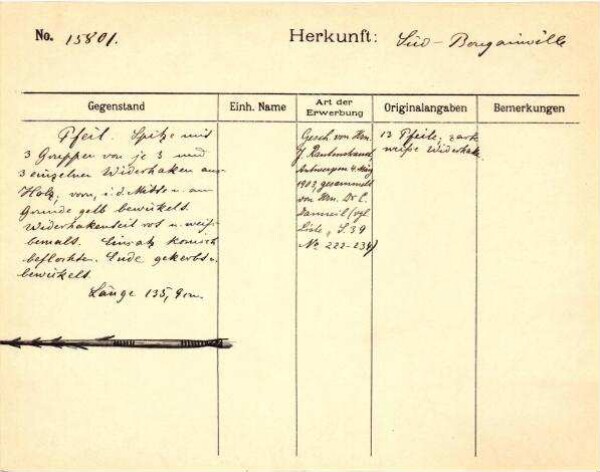 No. 15801.
Herkunft: Süd-Bougainville
Gegenstand
Einh. Name
Art der Erwerbung
Originalangaben
Bemerkungen
Pfeil. Spitze mit
3 Gruppen von je 3 und
3 einzelnen Widerhaken aus
Holz; vorn, i. d. Mitte u. am
Grunde gelb bewickelt.
Widerhakenteil rot u. weiß
bemalt. Einsatz konisch
beflochten. Ende gekerbt u.
bewickelt.
Länge 135,9 cm.
Gesch. von Hrn.
J. Rautenstrauch
Antwerpen 4. März
1903, gesammelt
von Hrn. Dr.
(vgl.
Liste, S. 39
No. 222-234)
13 Pfeile; zart
weiße Widerhak.